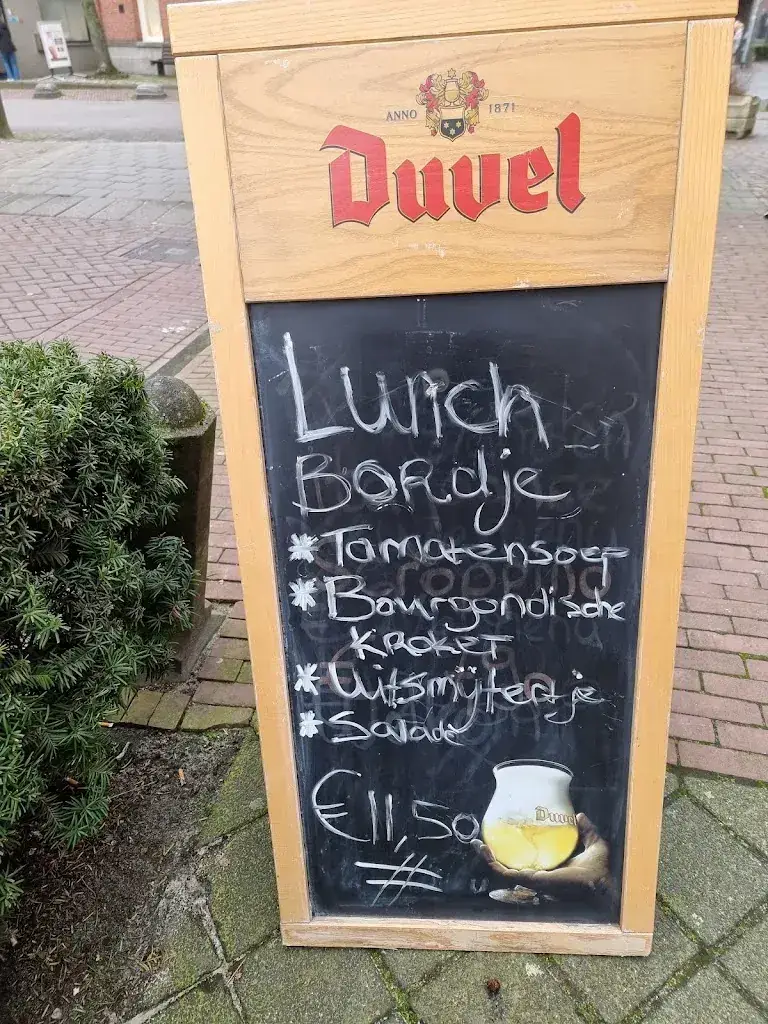 ANNO 1871
Duvel
Lunch
Bordje
* Tomatensoep
* Bourgondische
Kroket
* Uitsmytertje
* Salade
€11,50
Duvel